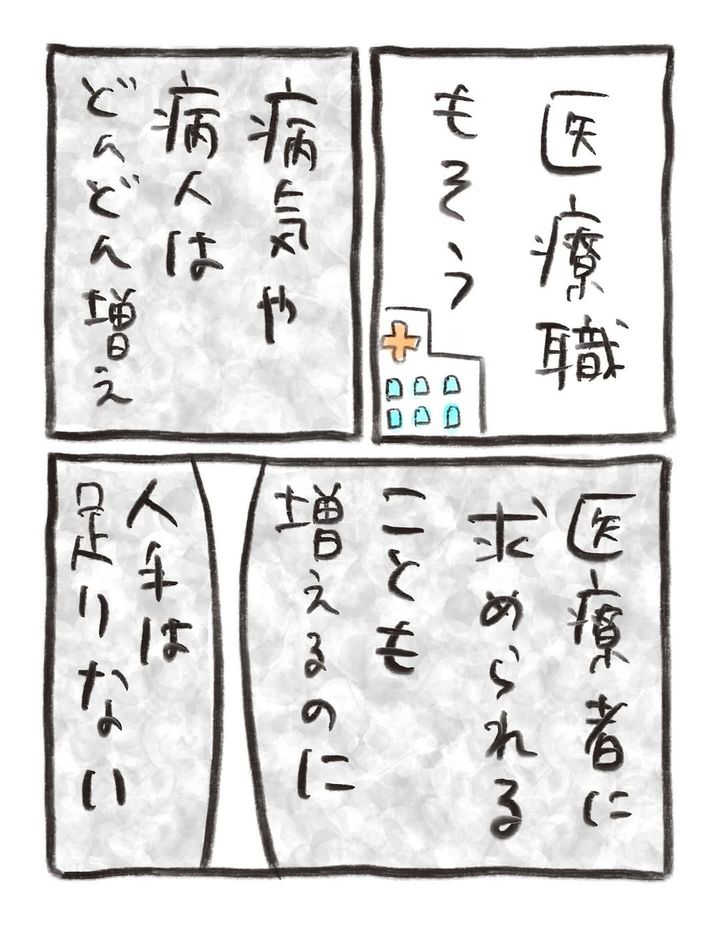 医療職
もそう
病気や
病人は
どんどん増え
医療者に
求められる
ことも
増えるのに
人手は
足りない